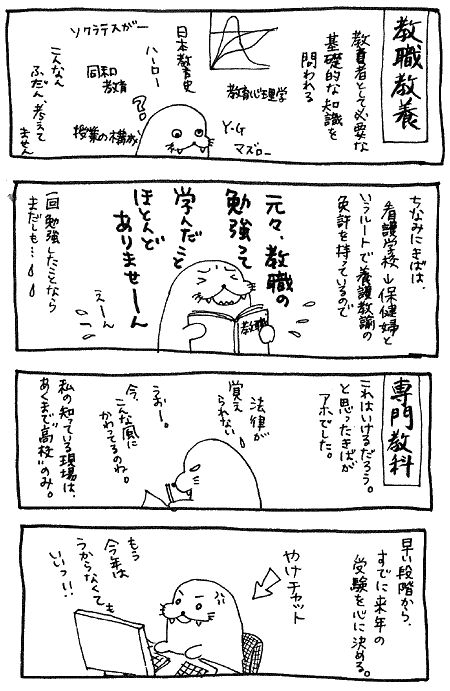 教職教養
教員者として必要な
基礎的な知識を
問われる
教育心理学
Y-G
マズロー
日本教育史
ハーロー
ソクラテスがー
同和
教育
授業の構成
?。
こんなん
ふだん、考えて
ません
ちなみにきばは、
看護学校→保健婦と
いうルートで養護教諭の
免許を持っているので
元々、教職の
勉強って
学んだこと
ほとんど
ありませーん
教職
えーん
一回勉強したことなら
まだしも…
専門教科
これはいけるだろう。
と思ったきばが
アホでした。
法律が
覚え
られない
うおー。
今、
こんな風に
かわってるのね。
私の知っている現場は、
あくまで"高校"のみ。
早い段階から、
すでに来年の
受験を心に決める。
やけチャット
もう
今年は
うからなくても
いいっ!!